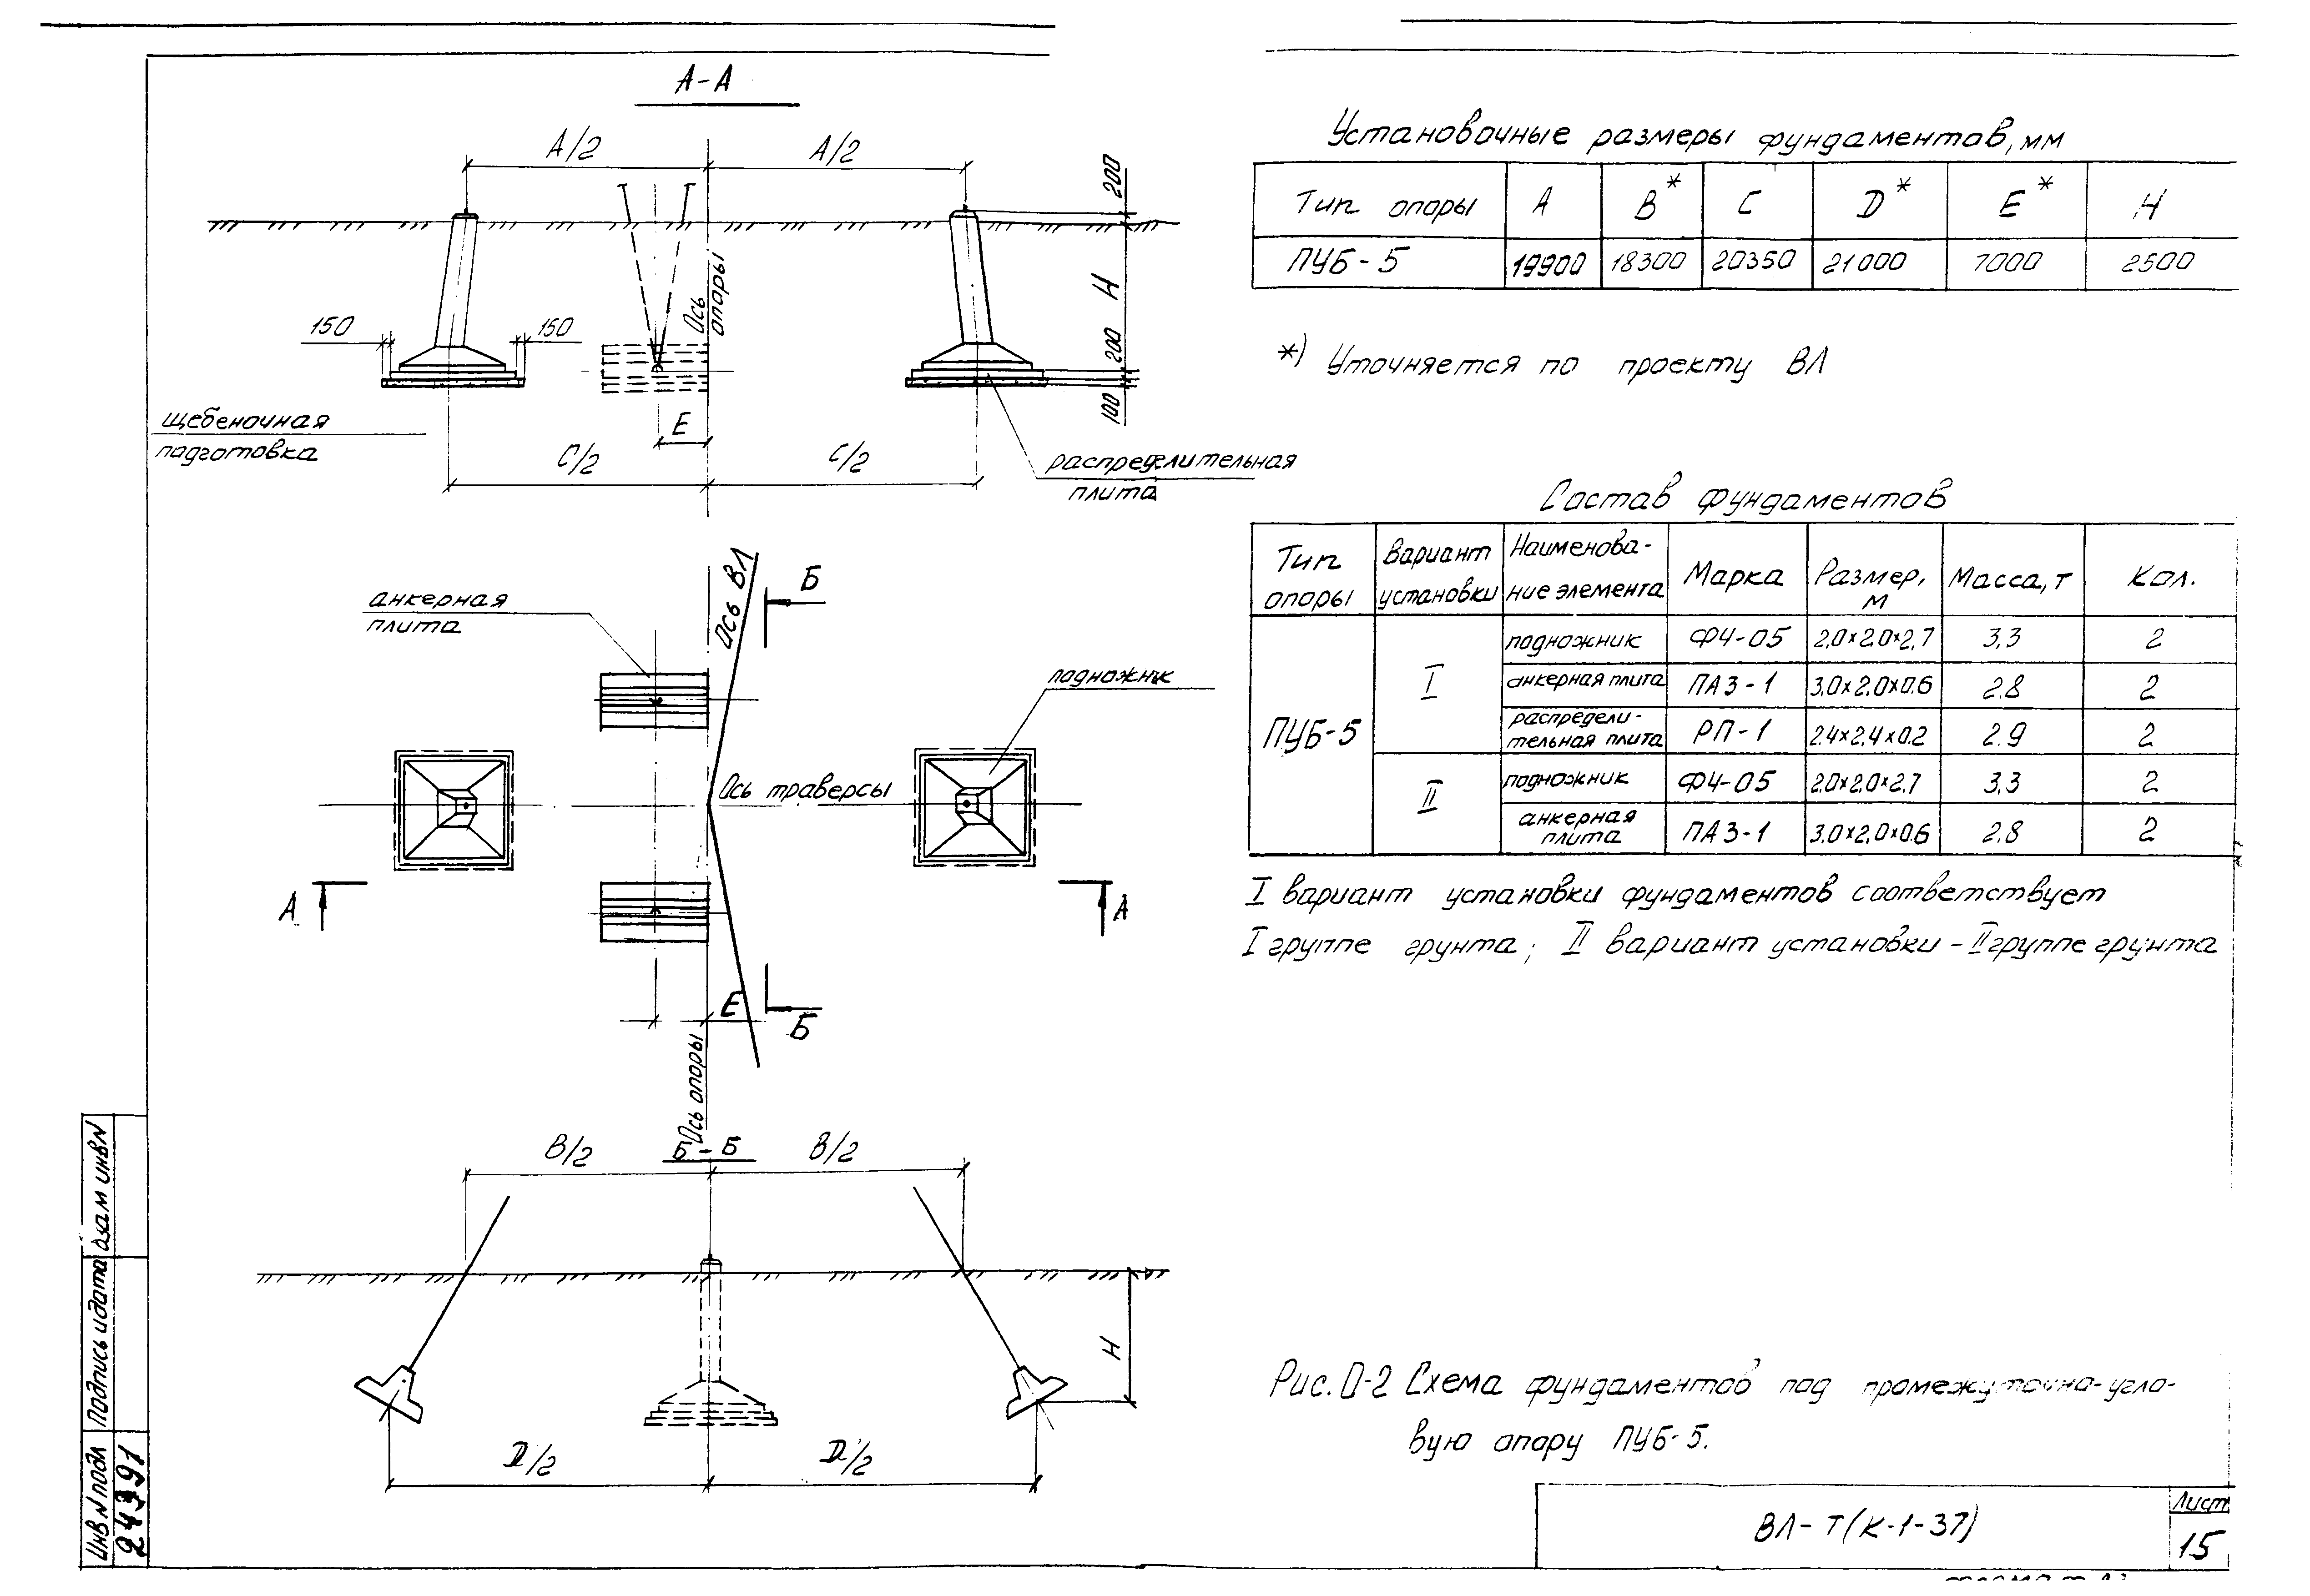 А-А
А/2
А/2
200
Ось
опоры
Н
150
150
200
100
щебеночная
подготовка
Е
С/2
С/2
распределительная
плита
Ось ВЛ
Б
анкерная
плита
подножник
Ось траверсы
А
А
Е
Б
Ось опоры
Б-Б
В/2
В/2
Н
D/2
D/2
Установочные размеры фундаментов, мм
Тип опоры А В* С D* Е* Н
ПУБ-5 19900 18300 20350 21000 7000 2500
*) Уточняется по проекту ВЛ
Состав фундаментов
Тип опоры Вариант установки Наименова-ние элемента Марка Размер, м Масса, т Кол.
ПУБ-5 I подножник Ф4-05 2,0×2,0×2,7 3,3 2
анкерная плита ПА3-1 3,0×2,0×0,6 2,8 2
распредели-тельная плита РП-1 2,4×2,4×0,2 2,9 2
II подножник Ф4-05 2,0×2,0×2,7 3,3 2
анкерная плита ПА3-1 3,0×2,0×0,6 2,8 2
I вариант установки фундаментов соответствует
I группе грунта; II вариант установки - II группе грунта
Рис. П-2 Схема фундаментов под промежуточно-угло-
вую опору ПУБ-5.
ВЛ-Т(К-1-37)
Лист
15
Инв N подл
24391
Подпись и дата
Взам инв N